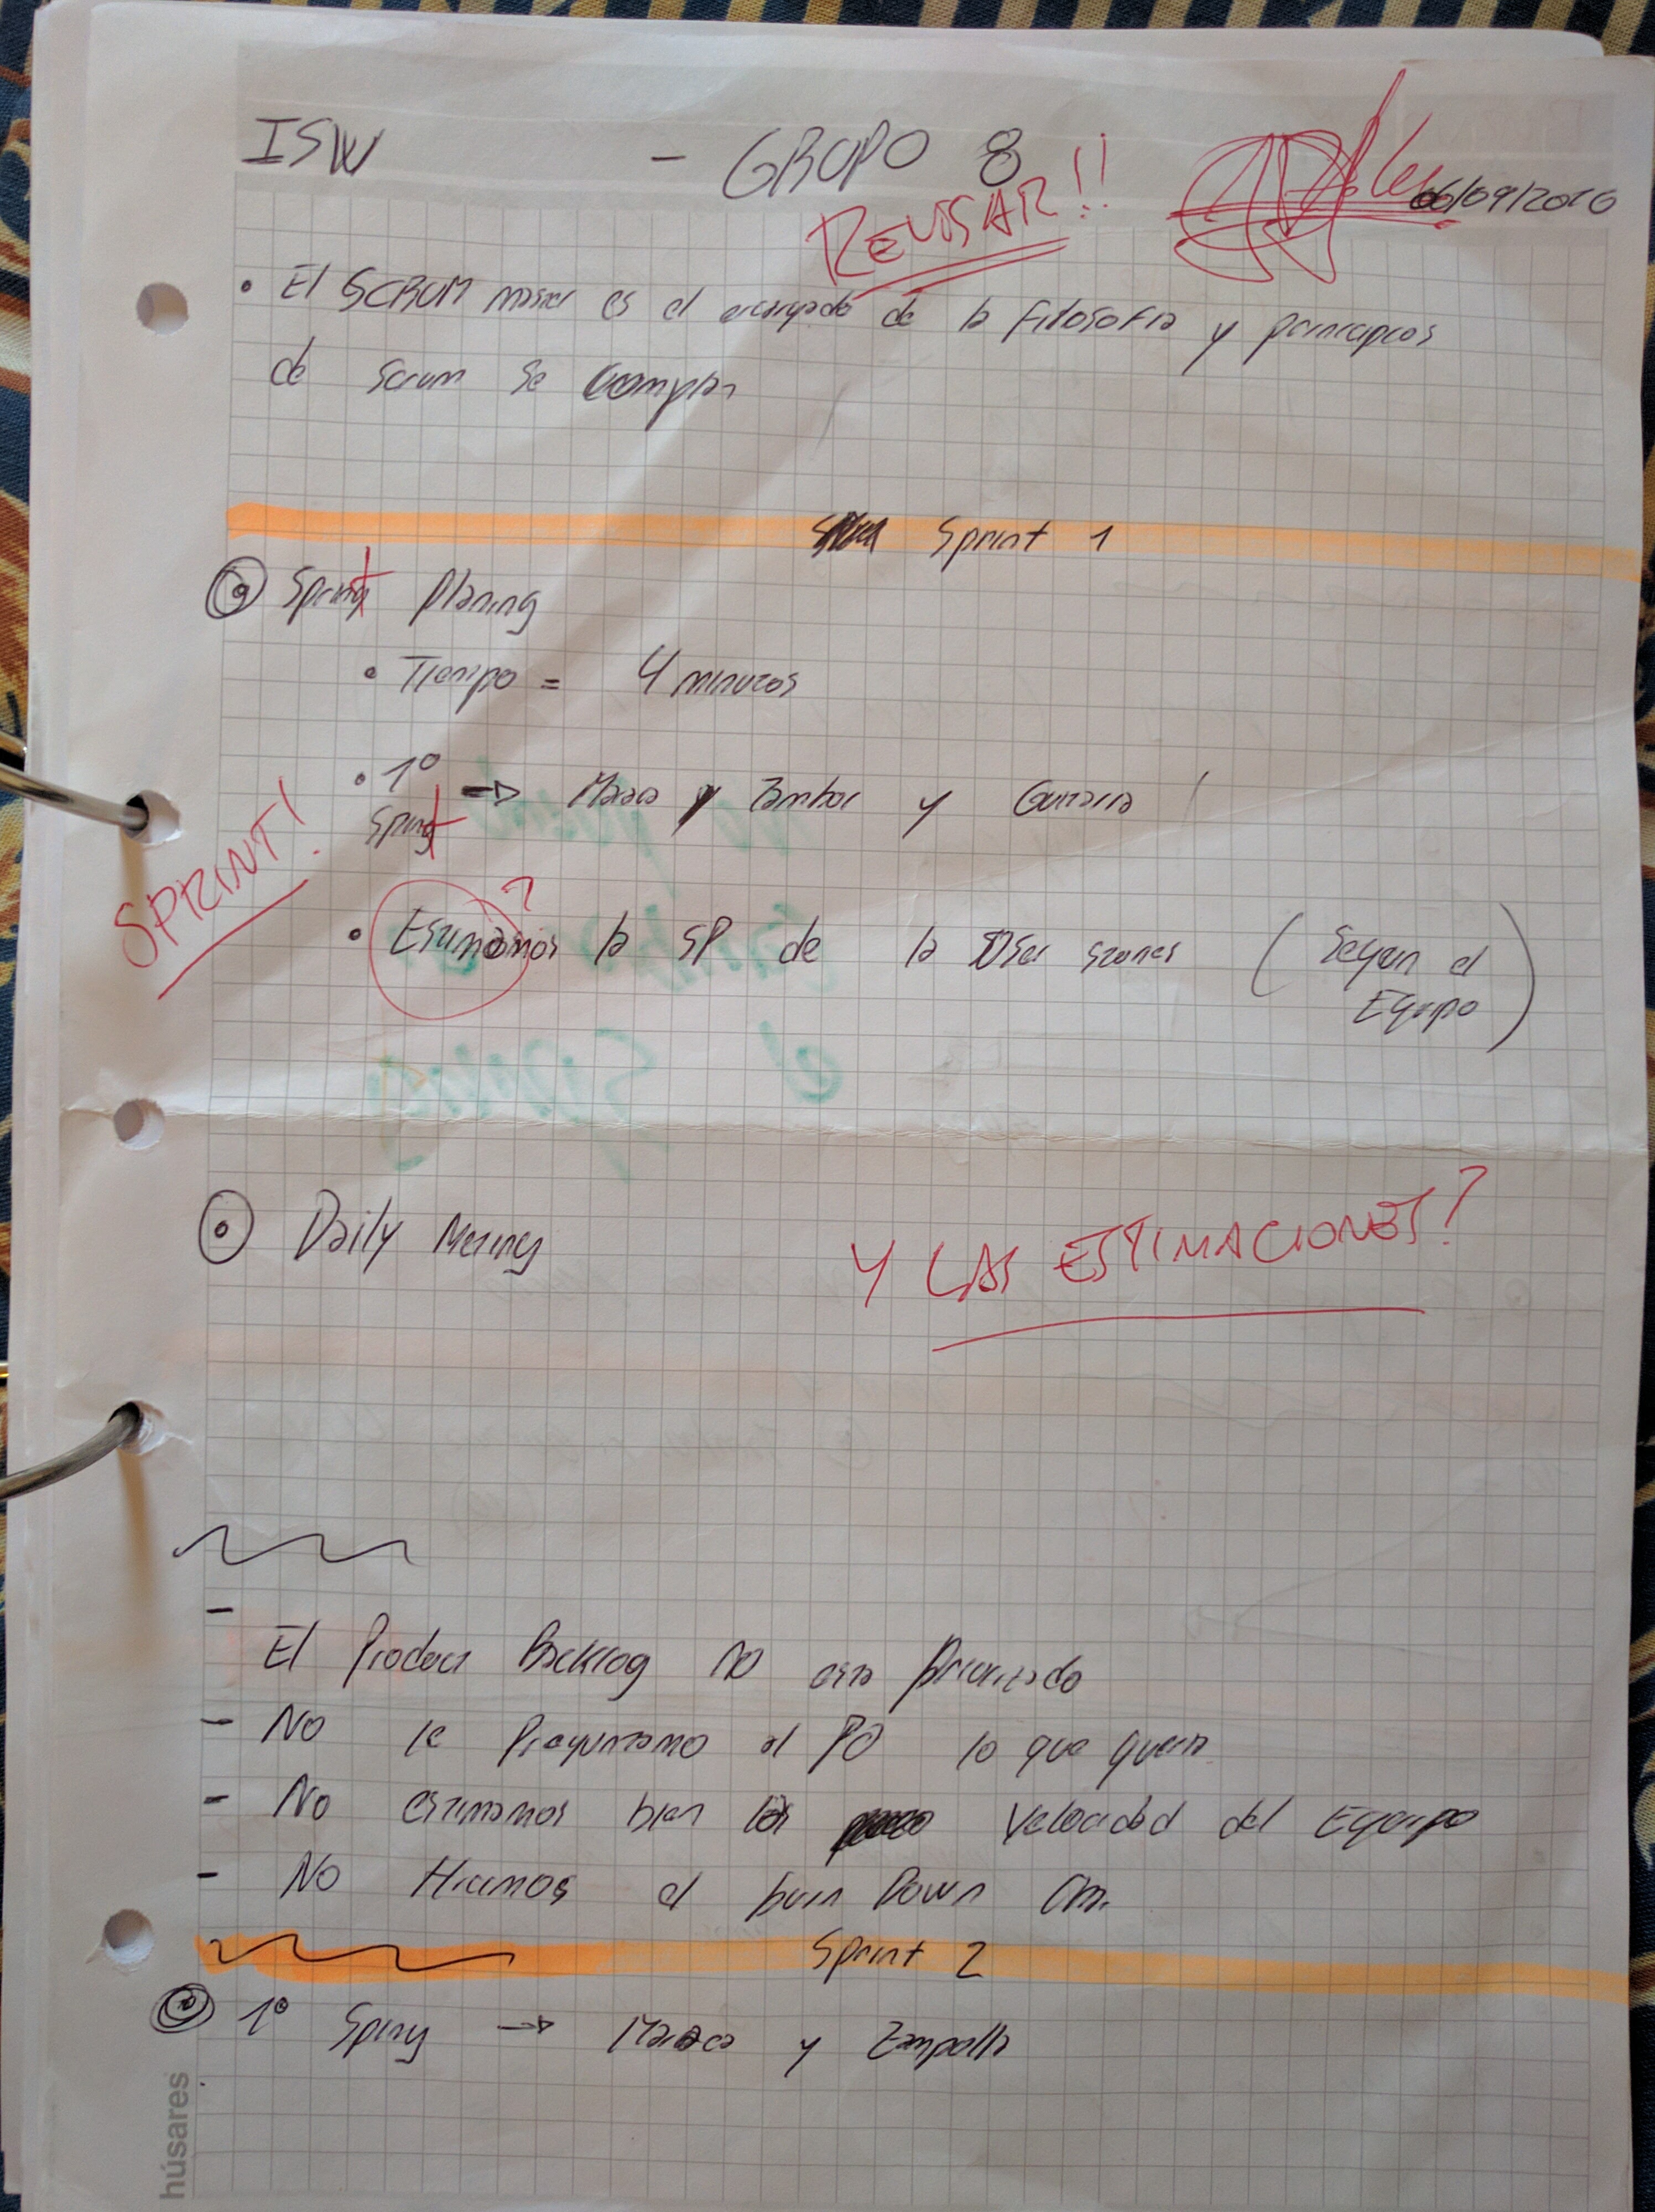 ISW - GRUPO 8
REVISAR!!
06/09/2010
• El SCRUM master es el encargado de la filosofia y principios
de scrum se cumplan
Sprint 1
Sprint Planing
• Tiempo = 4 minutos
• 1º
Sprint → Maraca y Tambor y Guitarra
SPRINT!
• Estimamos la SP de la User stories (Segun el
Equipo)
?
Daily Meting
Y LAS ESTIMACIONES?
-
El Product Backlog no esta priorizado
- No le Preguntamo al PO lo que queria
- No estimamos bien la Velocidad del Equipo
- No Hicimos el burn Down Ch.
Sprint 2
1º Spring → Maraca y
húsares